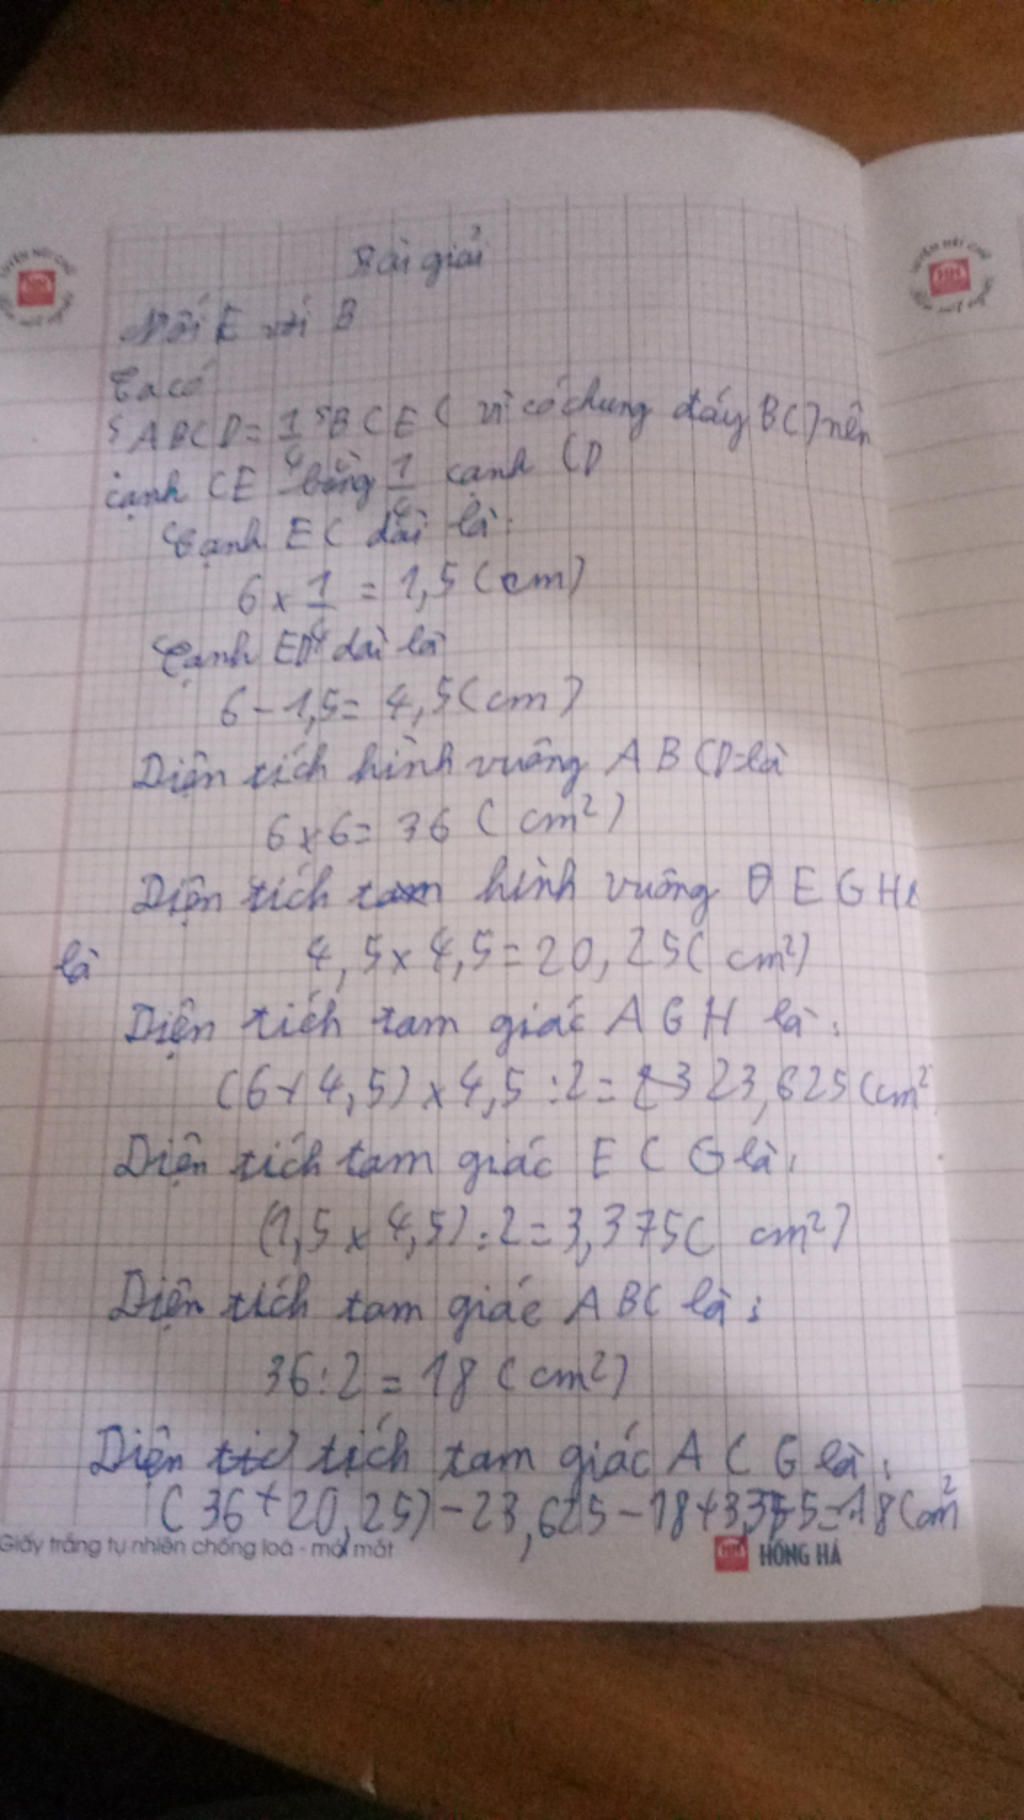 Bài giải
Nối E với B
Ta có
S ABCD = 1/4 S BCE ( vì có chung đáy BC) nên
cạnh CE bằng 1/4 cạnh CD
Cạnh EC dài là:
6 x 1/4 = 1,5 (cm)
Cạnh ED dài là
6 - 1,5 = 4,5 (cm)
Diện tích hình vuông ABCD là
6 x 6 = 36 ( cm²)
Diện tích hình vuông EGH
là
4,5 x 4,5 = 20,25 ( cm²)
Diện tích tam giác AGH là:
(6 + 4,5) x 4,5 : 2 = 23,625 (cm²
Diện tích tam giác ECG là:
(1,5 x 4,5) : 2 = 3,375 ( cm²)
Diện tích tam giác ABC là:
36 : 2 = 18 ( cm²)
Diện tích tam giác ACG là:
( 36 + 20,25) - 23,625 - 18 + 3,375 = 18 (cm²
Giấy trắng tự nhiên chống loá - mỏi mắt
HỒNG HÀ